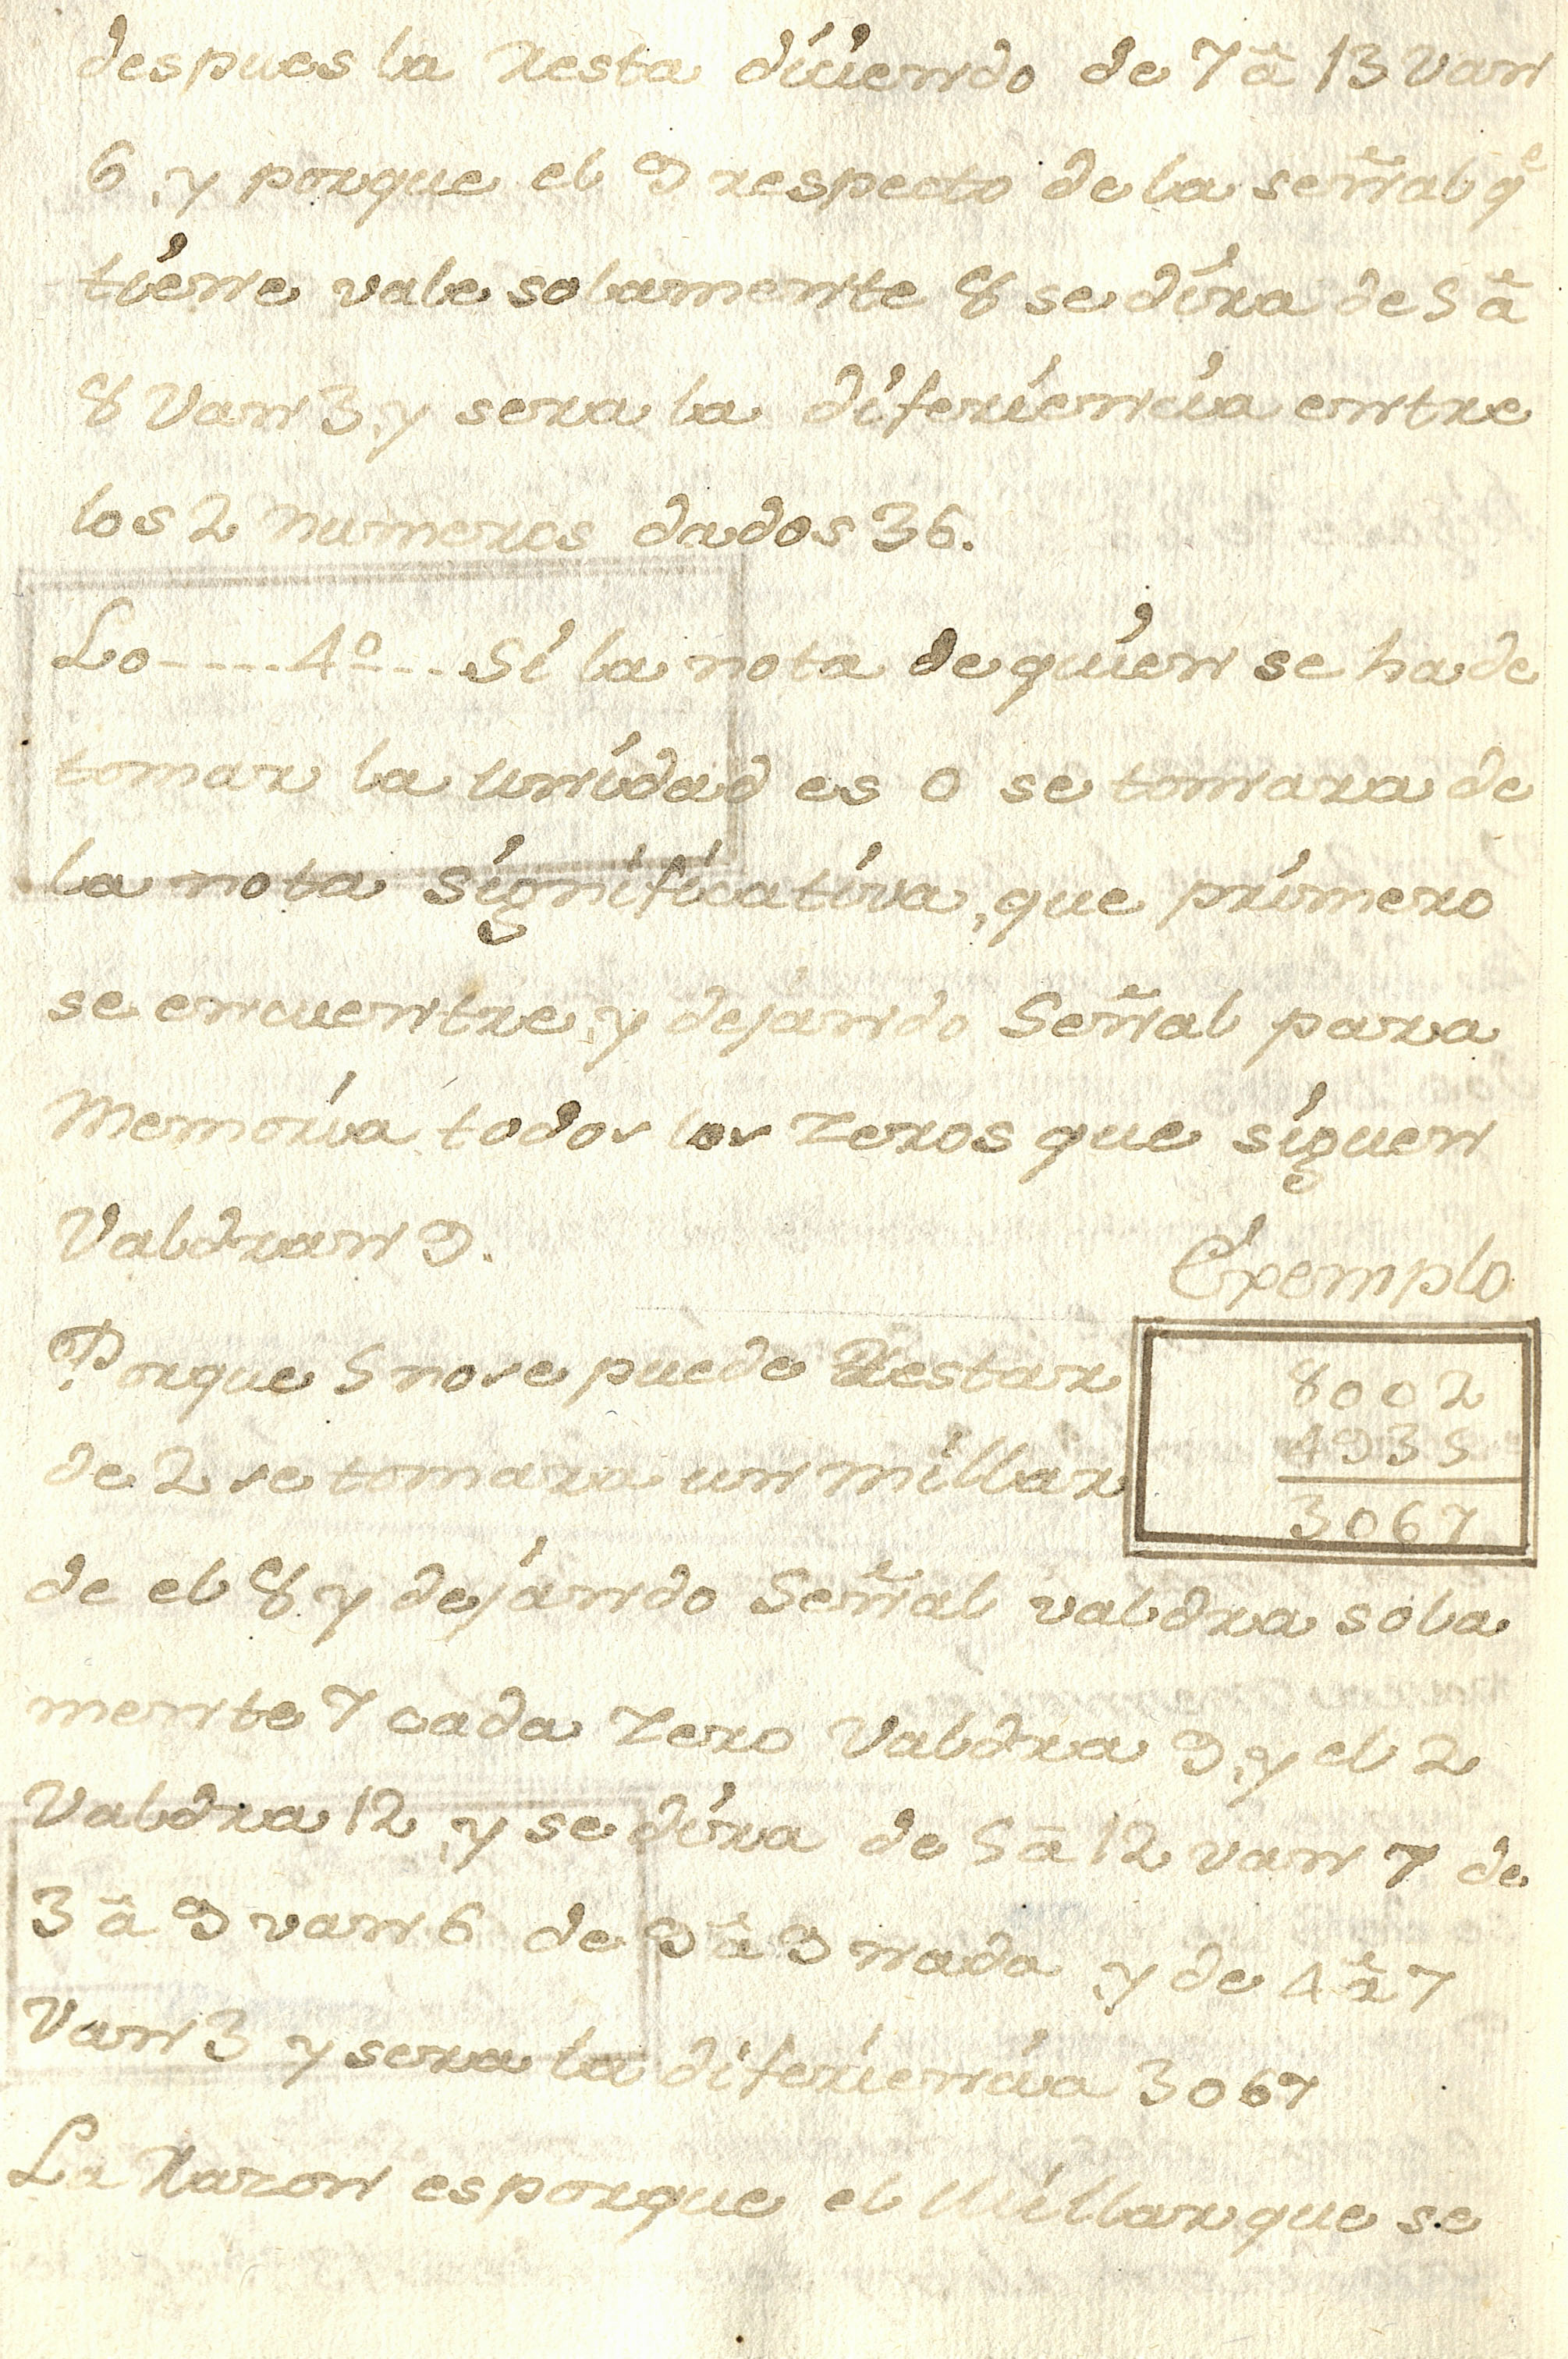 despues la Resta diciendo de 7 â 13 van
6, y porque el 9 respecto de la señal q.e
tiene vale solamente 8 se dira de 5 â
8 Van 3, y sera la diferiencia entre
los 2 numeros dados 36.
Lo-----4º--- Si la nota de quien se ha de
tomar la unidad es 0 se tomara de
la nota significativa, que primero
se encuentre, y dejando Señal para
Memoria todos los Zeros que siguen
Valdran 9.
Exemplo
Porque 5 no se puede Restar
de 2 se tomara un millar
8002
4935
3067
de el 8 y dejando Señal valdra sola
mente 7 cada Zero Valdra 9, y el 2
Valdra 12, y se dira de 5 â 12 van 7 de
3 â 9 van 6 de 9 â 9 nada, y de 4 â 7
Van 3 y sera la diferiencia 3067
La Razon es porque el Millar que se